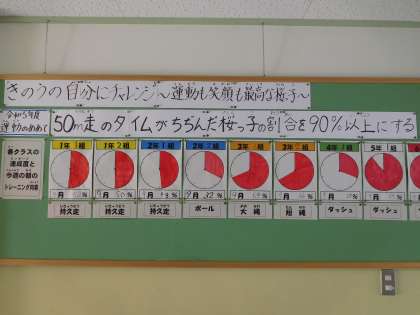 きのうの自分にチャレンジ~運動も笑顔も最高な桜っ子~
令和5年度
運動のめあて
50m走のタイムがちぢんだ桜っ子の割合を90%以上にする
各クラスの
達成度と
今週の朝の
トレーニング内容
1年1組 1年2組 2年1組 2年2組 3年1組 3年2組 4年1組 5年1組
月 月 月 月 月 月 月 月
持久走 持久走 持久走 ボール 大縄 短縄 ダッシュ ダッシュ